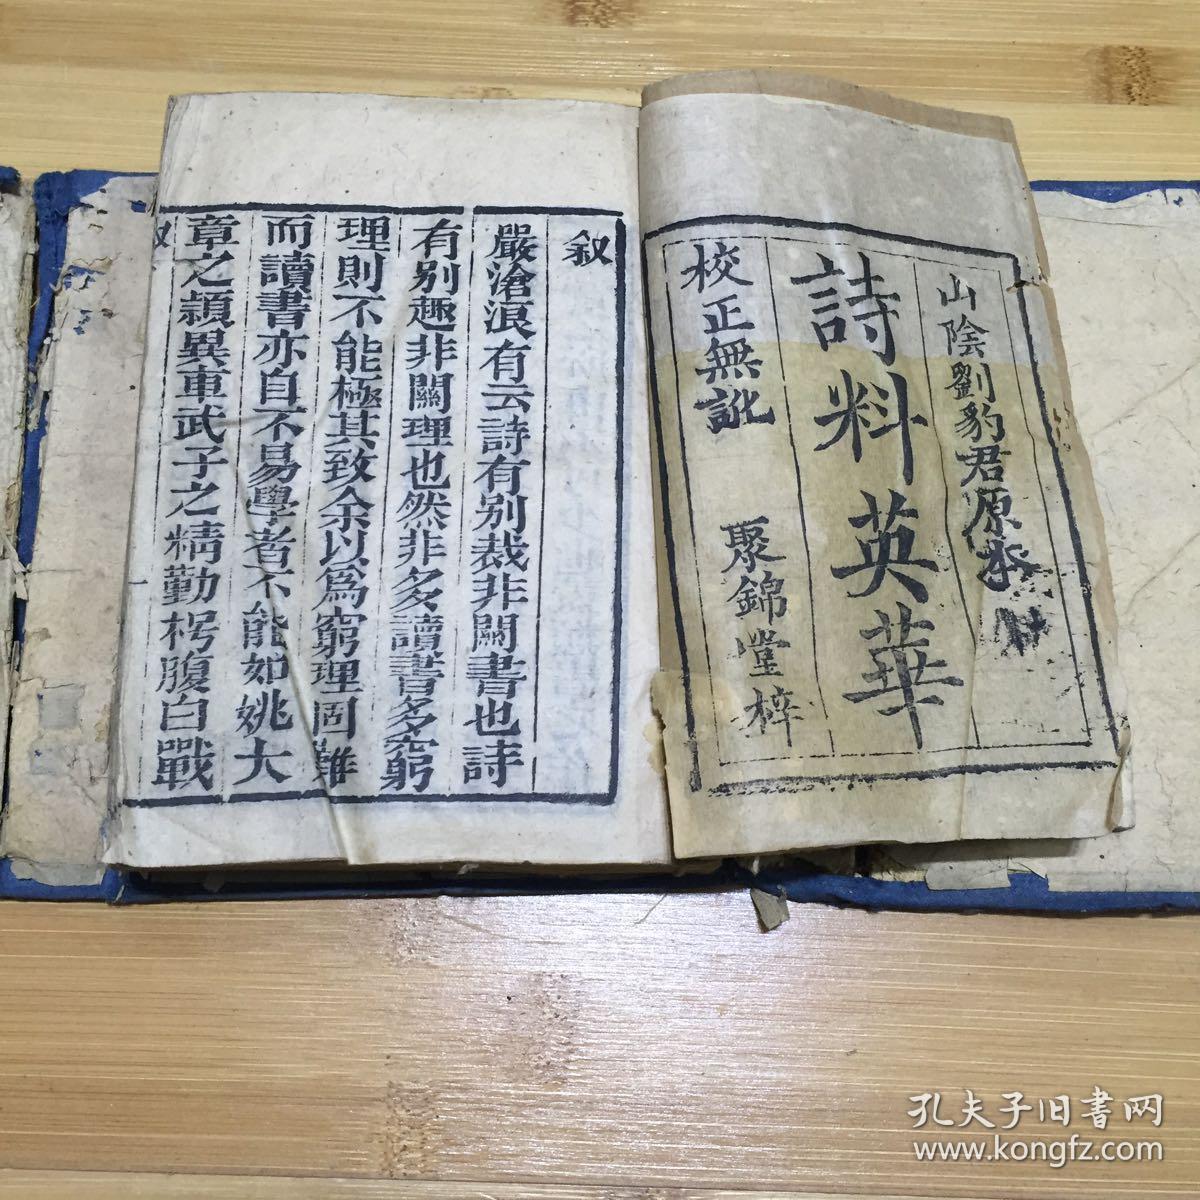 山陰劉豹君原本
詩料英華
校正無訛
聚錦堂梓
叙
嚴滄浪有云詩有别裁非關書也詩
有别趣非關理也然非多讀書多窮
理則不能極其致余以為窮理固難
而讀書亦自不易學者不能如姚大
章之穎異車武子之精勤枵腹白戰
叙
一
孔夫子旧书网
www.kongfz.com